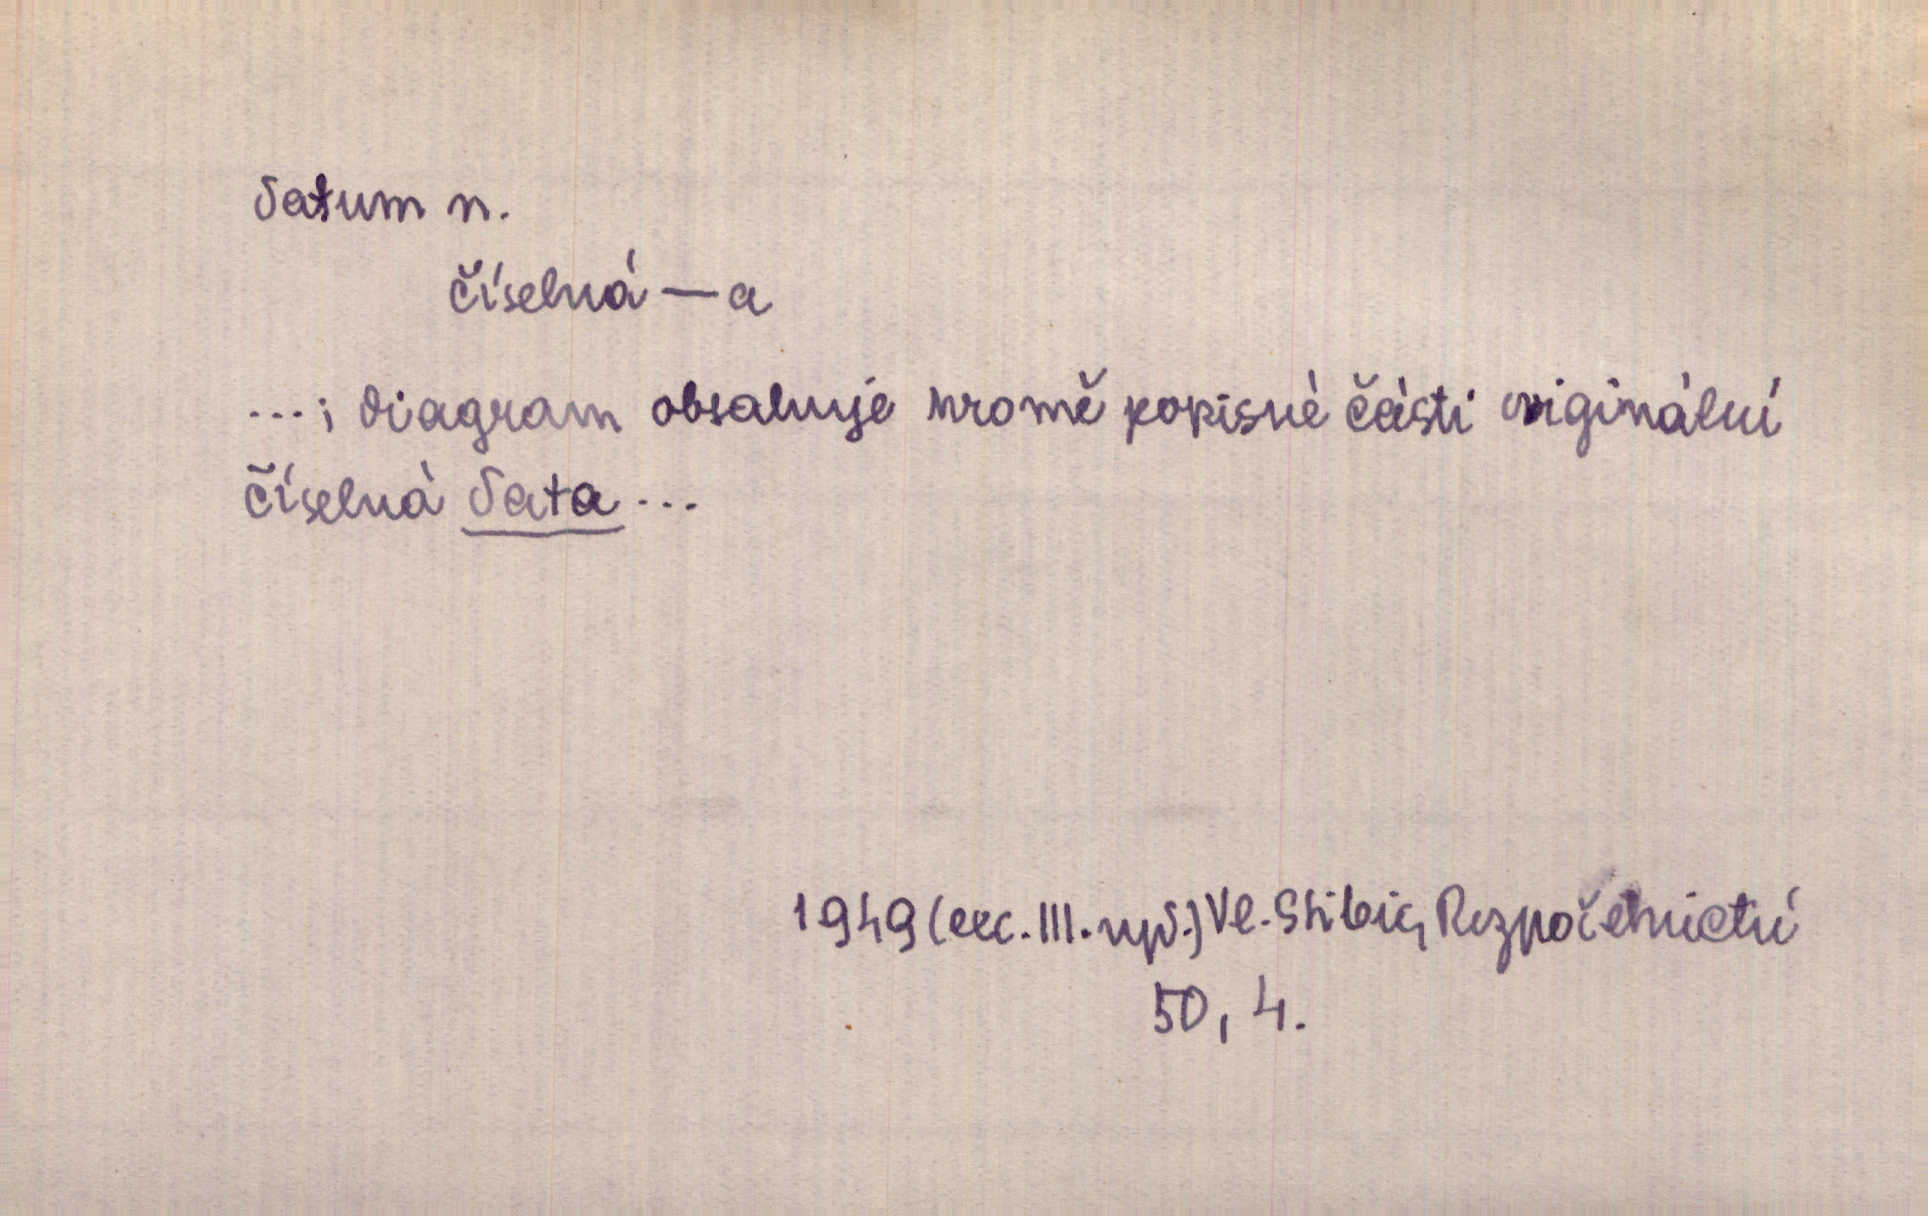 datum n.
číselná — a
...; diagram obsahuje kromě popisné části originální
číselná data ...
1949 (exc. III. vyd.) Vl. Stibic, Rozpočetnictví
50, 4.